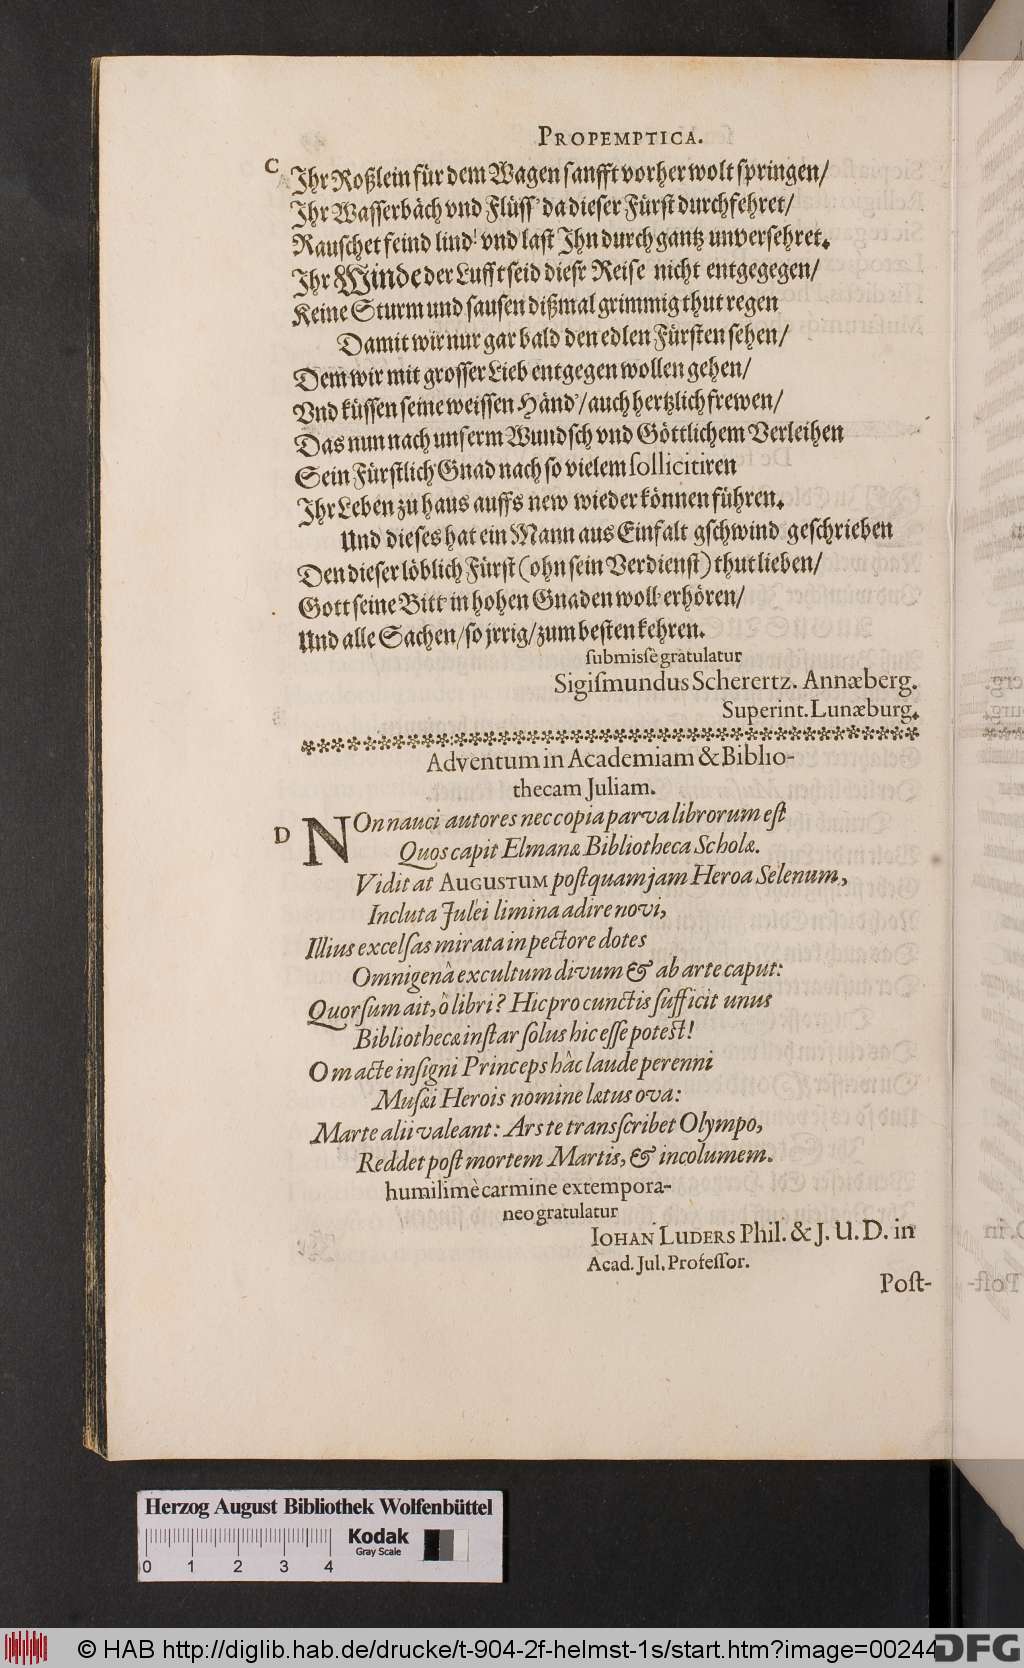 PROPEMPTICA.
C Ihr Roßlein für dem Wagen sanfft vorher wolt springen/
Ihr Wasserbäch vnd Flüss' da dieser Fürst durchfehret/
Rauschet fein dlind' vnd last Ihn durch gantz unversehret.
Ihr Winde der Lufft seid dieser Reise nicht entgegegen/
Keine Sturm und sausen dißmal grimmig thut regen
Damit wir nur gar bald den edlen Fürsten sehen/
Dem wir mit grosser Lieb entgegen wollen gehen/
Vnd küssen seine weissen Händ'/auch hertzlich frewen/
Das nun nach unserm Wundsch vnd Göttlichem Verleihen
Sein Fürstlich Gnad nach so vielem ſollicitiren
Ihr Leben zu haus auffs new wieder können führen.
Und dieses hat ein Mann aus Einfalt gschwind geschrieben
Den dieser löblich Fürst (ohn sein Verdienst) thut lieben/
Gott seine Bitt in hohen Gnaden woll erhören/
Und alle Sachen/so jrrig/zum besten kehren.
ſubmiſſè gratulatur
Sigiſmundus Scherertz. Annæberg.
Superint. Lunæburg.
Adventum in Academiam & Biblio-
thecam Juliam.
D NOn nauci autores nec copia parva librorum eſt
Quos capit Elmanæ Bibliotheca Scholæ.
Vidit at AUGUSTUM poſtquam jam Heroa Selenum,
Incluta Julei limina adire novi,
Illius excelſas mirata in pectore dotes
Omnigenâ excultum divum & ab arte caput:
Quorſum ait, ô libri? Hic pro cunctis ſufficit unus
Bibliothecæ inſtar ſolus hic eſſe poteſt!
O macte inſigni Princeps hâc laude perenni
Muſæi Herois nomine lætus ova:
Marte alii valeant: Ars te tranſcribet Olympo,
Reddet poſt mortem Martis, & incolumem.
humilimè carmine extempora-
neo gratulatur
IOHAN LUDERS Phil. & J. U. D. in
Acad. Jul. Profeſſor.
Poſt-
Herzog August Bibliothek Wolfenbüttel
Kodak
Gray Scale
0 1 2 3 4
© HAB http://diglib.hab.de/drucke/t-904-2f-helmst-1s/start.htm?image=00244
DFG